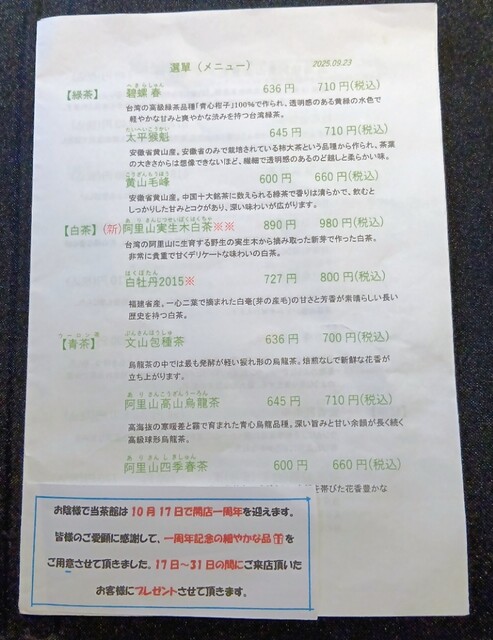 選單（メニュー） 2025.09.23
【緑茶】 碧螺春 636円 710円(税込)
台湾の高級緑茶品種「青心柑子」100%で作られ、透明感のある黄緑の水色で
軽やかな甘みと爽やかな渋みを持つ台湾緑茶。
たいへいこうかい
太平猴魁 645円 710円(税込)
安徽省黄山産。安徽省のみで栽培されている柿大茶という品種から作られ、茶葉
の大きさからは想像できないほど、繊細で透明感のあるのど越しと柔らかい味。
こうざんもうほう
黄山毛峰 600円 660円(税込)
安徽省黄山産。中国十大銘茶に数えられる緑茶で香りは清らかで、飲むと
しっかりした甘みとコクがあり、深い味わいが広がります。
【白茶】(新)阿里山実生木白茶※※ 890円 980円(税込)
台湾の阿里山に生育する野生の実生木から摘み取った新芽で作った白茶。
非常に貴重で甘くデリケートな味わいの白茶。
はくぼたん
白牡丹2015※ 727円 800円(税込)
福建省産。一心二葉で摘まれた白毫(芽の産毛)の甘さと芳香が素晴らしい長い
歴史を持つ白茶。
ウーロン茶
【青茶】 文山包種茶 636円 700円(税込)
烏龍茶の中では最も発酵が軽い捩れ形の烏龍茶。焙煎なしで新鮮な花香が
立ち上がります。
ありさんこうざんうーろん
阿里山高山烏龍茶 645円 710円(税込)
高海抜の寒暖差と霧で育まれた青心烏龍品種。深い旨みと甘い余韻が長く続く
高級球形烏龍茶。
ありさんしきしゅん
阿里山四季春茶 600円 660円(税込)
を帯びた花香豊かな
お陰様で当茶館は10月17日で開店一周年を迎えます。
皆様のご愛顧に感謝して、一周年記念の細やかな品🎁を
ご用意させて頂きました。17日～31日の間にご来店頂いた
お客様にプレゼントさせて頂きます。